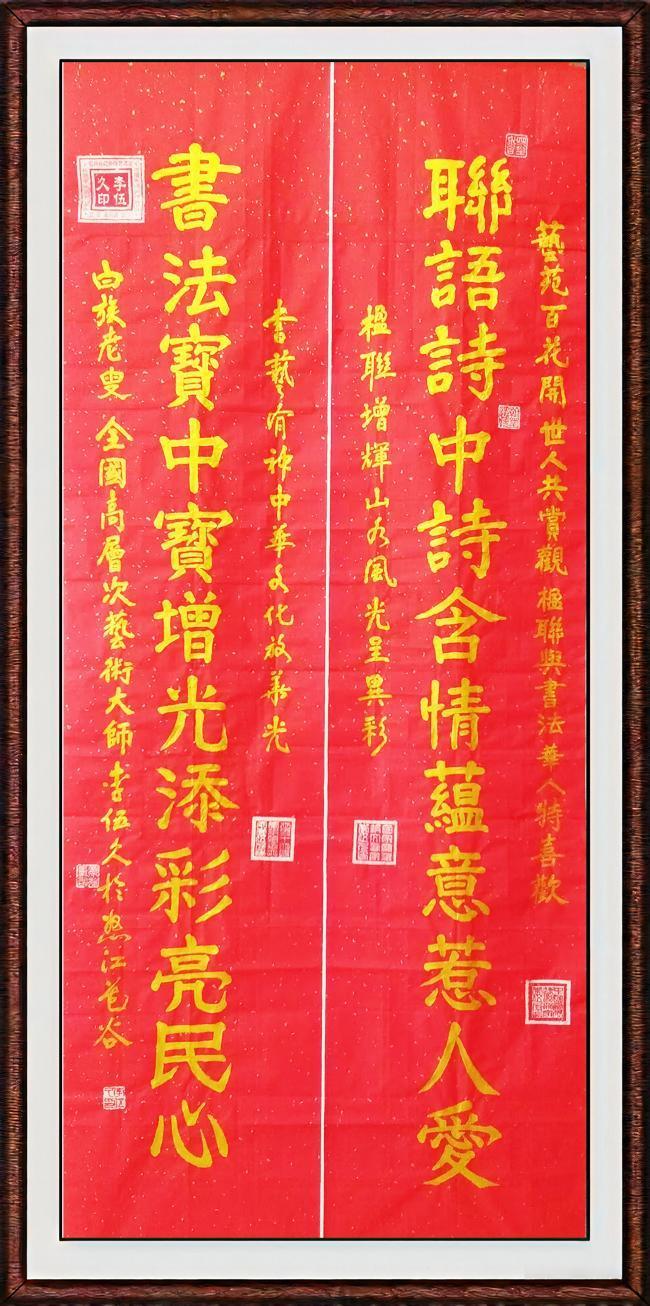 藝苑百花開世人共賞觀楹聯與書法華人特喜歡
聯語詩中詩含情蘊意惹人愛
楹聯增輝山水風光呈異彩
書藝有神中華文化放華光
書法寶中寶增光添彩亮民心
白族老叟全國高層次藝術大師李伍久於怒江芭谷
李伍久印